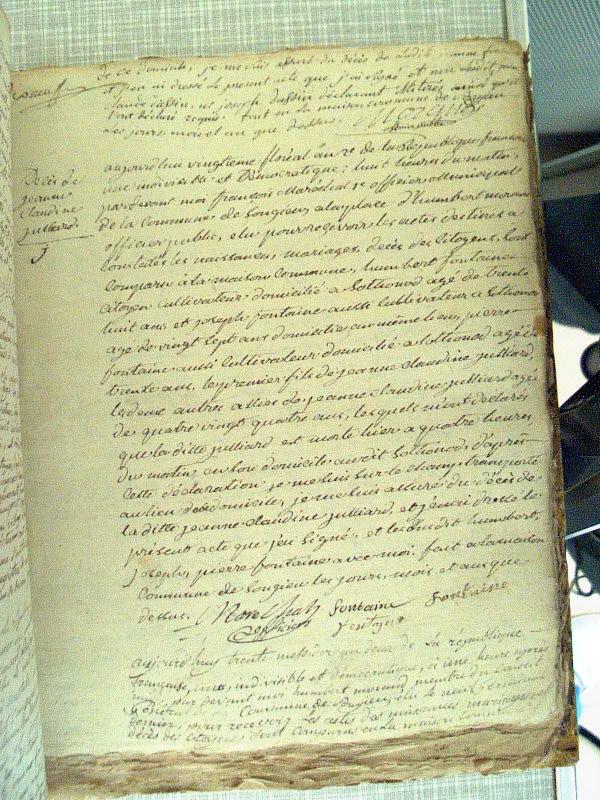 de ce domicile, je me suis assuré du décès de ladite
et j'en ai dressé le présent acte que j'ai signé et non
claude et joseph déclarant illitérés
tout déclaré requis. fait en la maison commune de Songieu
Les jours, mois et an que dessus. Marechal
officier public
Décès de
jeanne
Claudine
julliard.
aujourd'hui vingtieme floréal an 2e de la République francaise
une indivisible et Démocratique, huit heures du matin,
pardevant moi françois Maréchal je officier municipal
de la Commune de Songieu, a la place d'humbert morand
officier public, elu pour recevoir les actes destinés a
constater les naissances, mariages, décès des Citoyens, sont
Comparu à la maison Commune, humbert fontaine
citoyen Cultivateur domicilié a Sothonod agé de trente
huit ans, et joseph fontaine aussi Cultivateur a Sothonod
agé de vingt sept ans domicilié au même lieu, pierre
fontaine aussi Cultivateur domicilié a Sothonod agé de
trente ans, le premier fils de jeanne claudine julliard
les deux autres alliés de jeanne Claudine julliard agé
de quatre vingt quatre ans, lesquels m'ont déclaré
que la ditte julliard est morte hier a quatre heures
du matin, en son domicile au dit Sothonod, d'après
Cette déclaration je me suis sur le champ transporté
au lieu de domicile, je me suis assuré du décès de
la ditte jeanne claudine julliard, et j'en ai dressé le
présent acte que j'ai signé, et les susdit humbert,
joseph, pierre fontaine avec moi. fait a la maison
Commune de Songieu les jours, mois et an que
dessus. Marechal fontaine fontaine
officier
aujourd'huy trente messidor an deux de la republique
française, une, indivisible et démocratique, à une heure après
midi, par devant moi humbert morand membre du Conseil
Commune de Songieu, elu le
dernier, pour recevoir les actes des naissances mariages
décès des Citoyens, sont comparus en la maison Commune